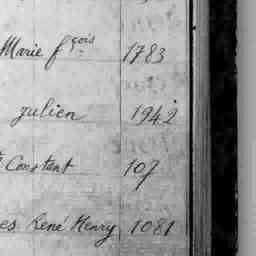 Marie fçois 1783
julien 1942
Constant 107
es René Henry 1081